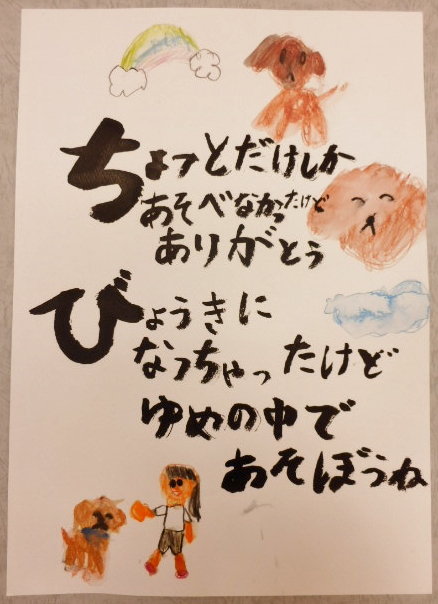 ちょっとだけしか
あそべなかったけど
ありがとう
びょうきに
なっちゃったけど
ゆめの中で
あそぼうね